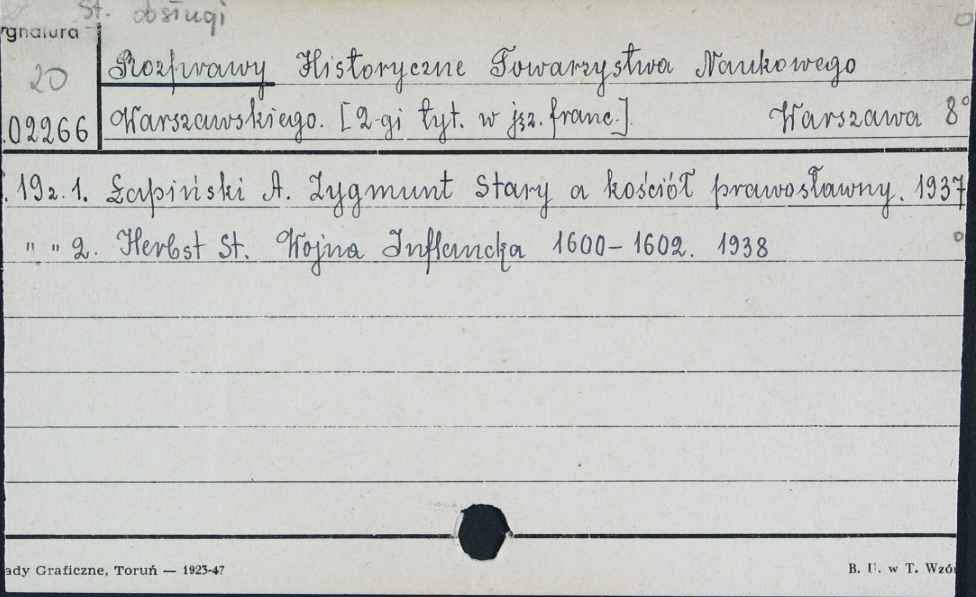 St. obsługi
ygnatura
20
02266
Rozprawy Historyczne Towarzystwa Naukowego
Warszawskiego. [2-gi tyt. w jęz. franc.] Warszawa 8°
19 z. 1. Łapiński A. Zygmunt Stary a kościół prawosławny. 1937
" " 2. Herbst St. Wojna Inflancka 1600-1602. 1938
ady Graficzne, Toruń — 1923-47
B. U. w T. Wzó